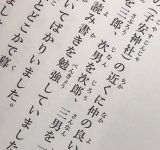 子安神社の近くに仲の良い
を三郎、次男を次郎、三男を
読み書きを勉強
いてばかりいました。
とどこかで暮